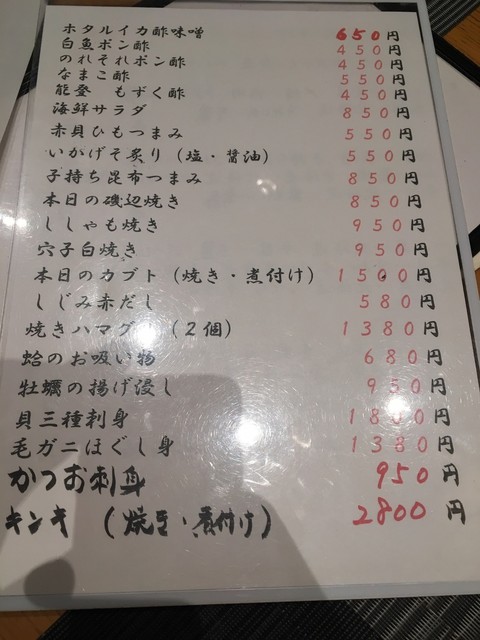 ホタルイカ酢味噌 650円
白魚ポン酢 450円
のれそれポン酢 450円
なまこ酢 550円
能登 もずく酢 450円
海鮮サラダ 850円
赤貝ひもつまみ 550円
いかげそ炙り(塩・醤油) 550円
子持ち昆布つまみ 850円
本日の磯辺焼き 850円
ししゃも焼き 950円
穴子白焼き 950円
本日のカブト(焼き・煮付け) 1500円
しじみ赤だし 580円
焼きハマグリ(2個) 1380円
蛤のお吸い物 680円
牡蠣の揚げ浸し 950円
貝三種刺身 1800円
毛ガニほぐし身 1380円
かつお刺身 950円
キンキ (焼き・煮付け) 2800円